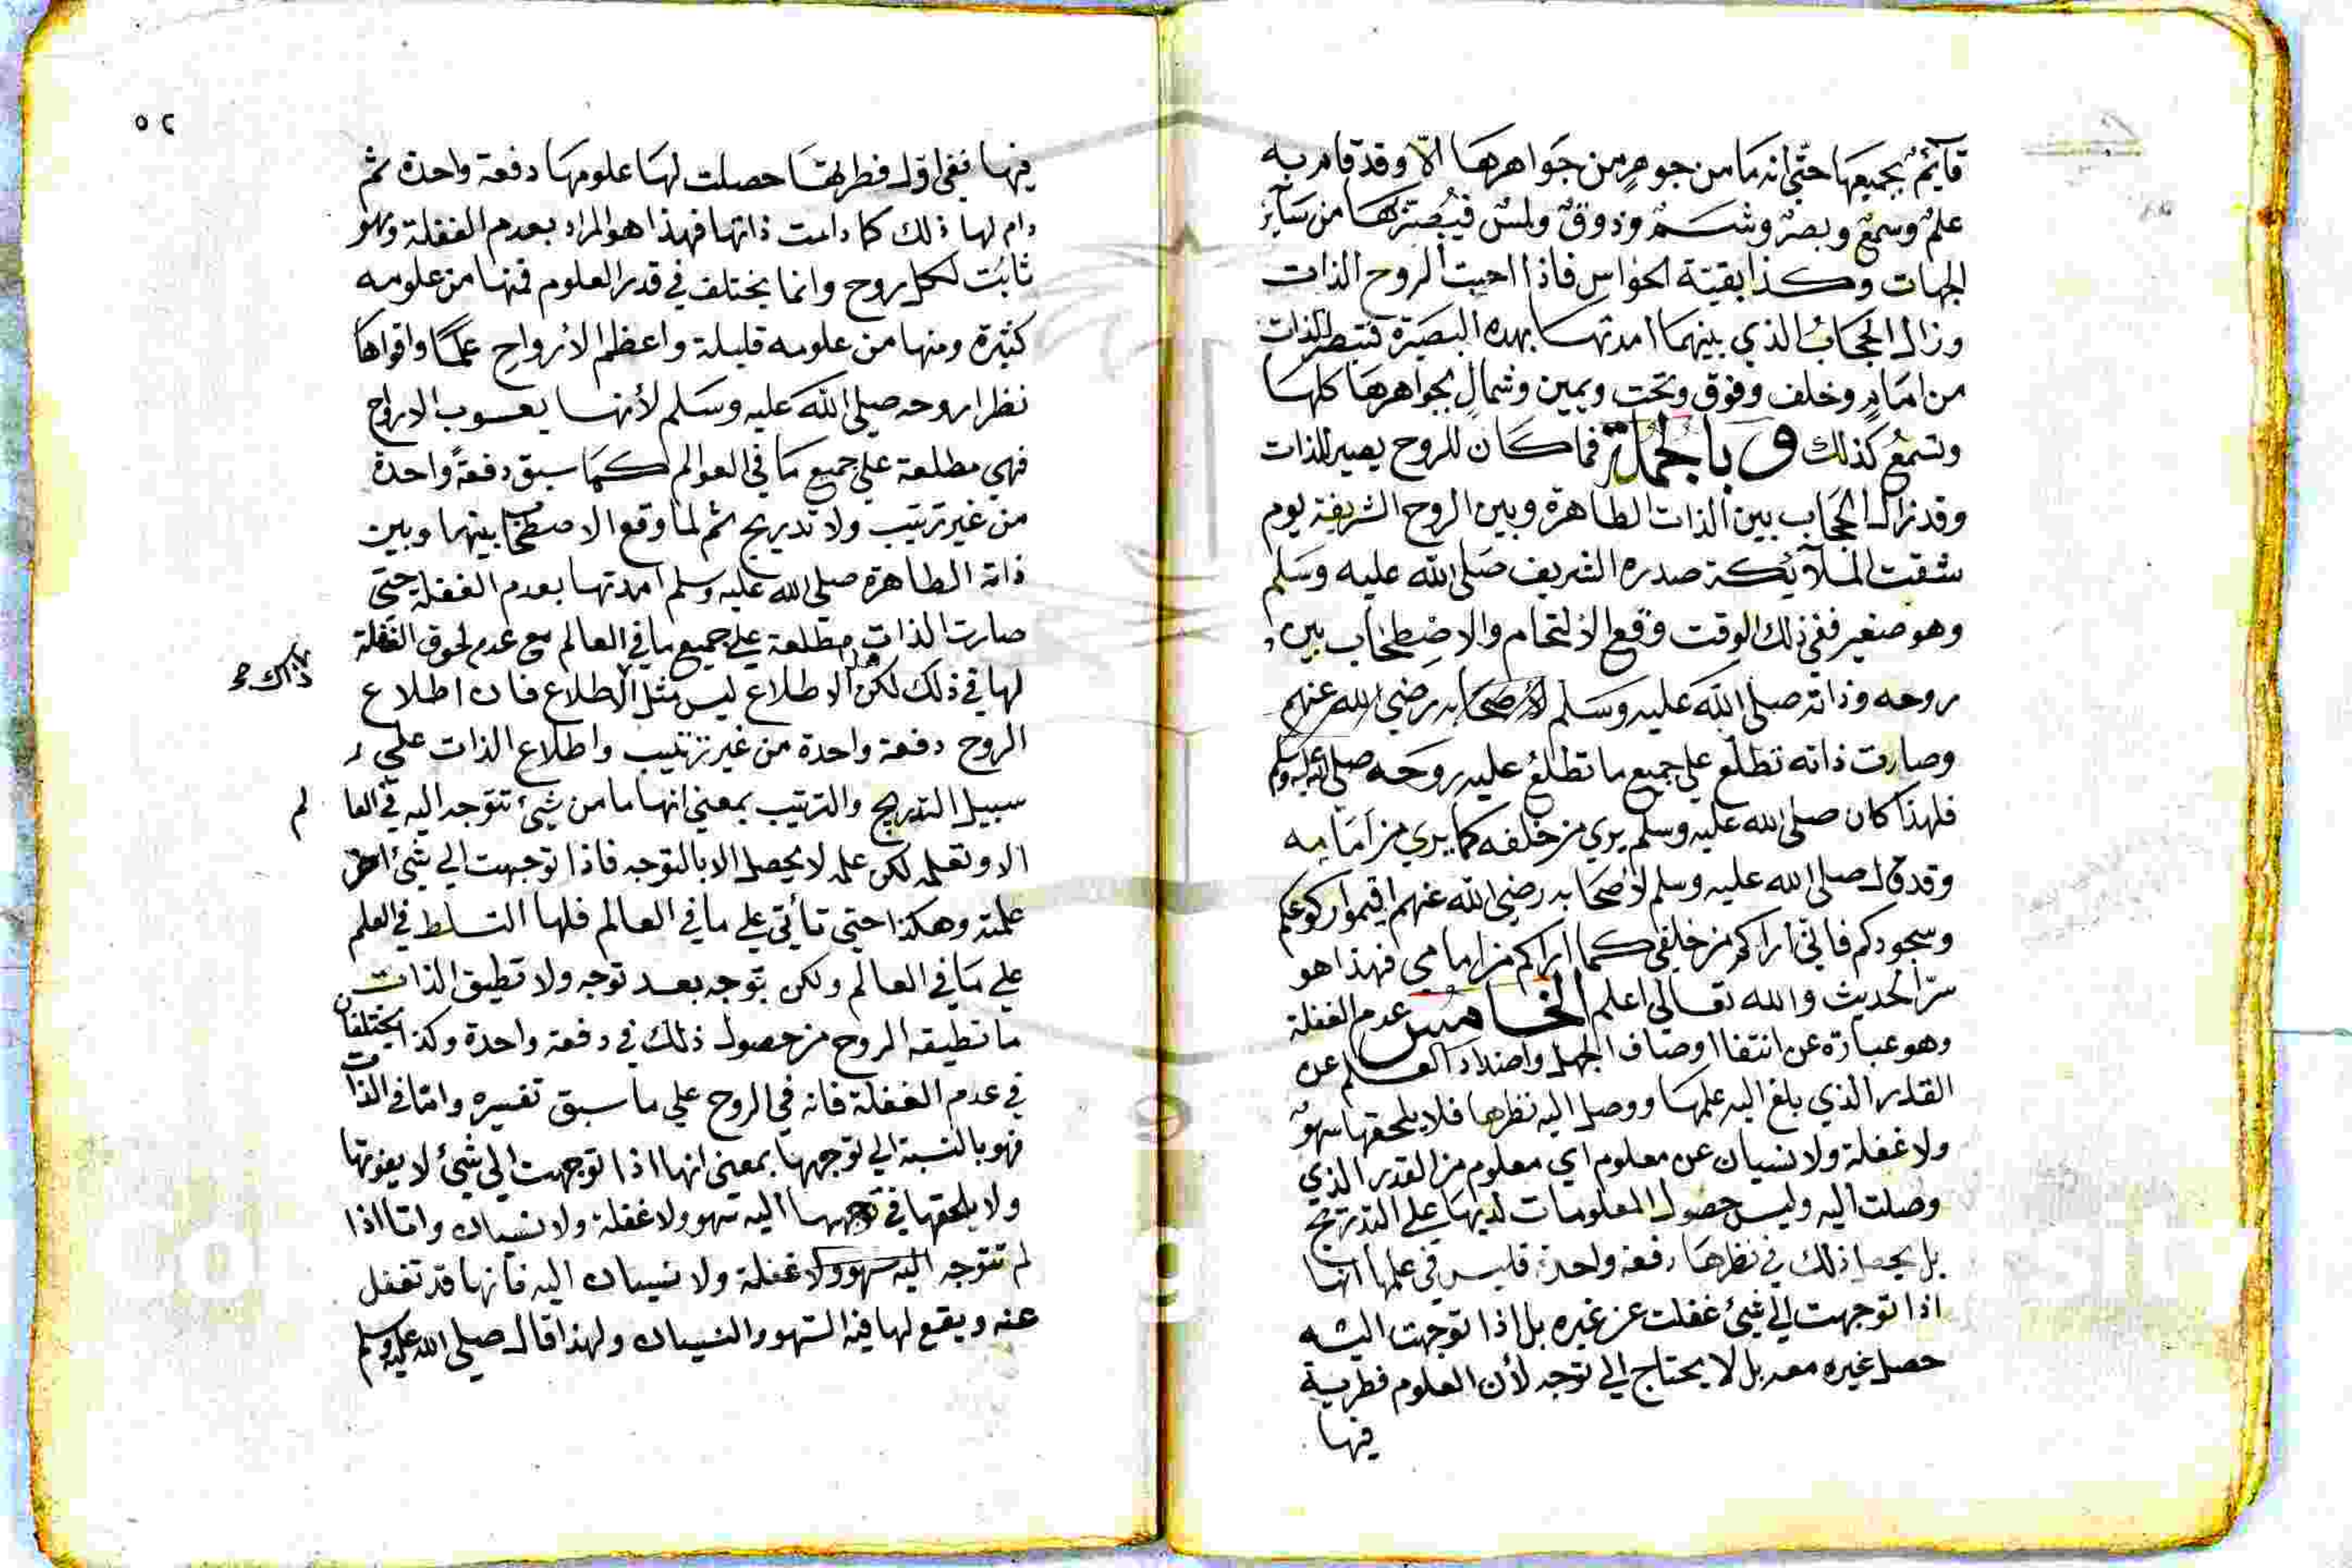 قآيمٌ بجميعها حتى انه ما من جوهرٍ من جواهرها الّا وقد قام به
علمٌ وسمعٌ وبصرٌ وشمٌ وذوقٌ ولمسٌ فيُبصرُها من سآئر
الجهات وكذا بقية الحواسِ فاذا احبت الروح الذات
وزال الحجابُ الذي بينهما امدتها بهذه البصيرة فتبصر الذات
من امامٍ وخلف وفوق وتحت ويمين وشمالٍ بجواهرها كلها
وتسمعُ كذلك وبالجملة فما كان للروح يصير للذات
وقد زال الحجاب بين الذات الطاهرة وبين الروح الشريفة يوم
شقت الملآئكة صدره الشريف صلى الله عليه وسلم
وهو صغير ففي ذلك الوقت وقع الالتحام والاصطحاب بين
روحه وذاته صلى الله عليه وسلم لأصحابه رضي الله عنهم
وصارت ذاته تطلع علي جميع ما تطلعُ عليه روحه صلى الله عليه وسلم
فلهذا كان صلى الله عليه وسلم يري من خلفه كما يري من امامه
وقد قال صلى الله عليه وسلم لأصحابه رضي الله عنهم اقيموا ركوعكم
وسجودكم فاني اراكم من خلفي كما اراكم من امامي فهذا هو
سرّ الحديث والله تعالي اعلم الخامس عدم الغفلة
وهو عبارة عن انتفا اوصاف الجهل واضداد العلم عن
القدر الذي بلغ اليه علمها ووصل اليه نظرها فلا يلحقها سهوٌ
ولا غفلة ولا نسيان عن معلوم اي معلوم من القدر الذي
وصلت اليه وليس حصول المعلومات لديها علي التدريج
بل يحصل ذلك في نظرها دفعة واحدة فليس في علمها انها
اذا توجهت الي شيئ غفلت عن غيره بل اذا توجهت اليه
حصل غيره معه بل لا يحتاج الي توجه لأن العلوم فطرية
فيها
٥٢
فيها ففي اول فطرتها حصلت لها علومها دفعة واحدة ثم
دام لها ذلك كما دامت ذاتها فهذا هو المراد بعدم الغفلة وهو
ثابت لكل روح وانما يختلف في قدر العلوم فمنها من علومه
كثيرة ومنها من علومه قليلة واعظم الأرواح علمًا واقواها
نظرا روحه صلى الله عليه وسلم لأنها يعسوب الارواح
فهي مطلعة علي جميع ما في العوالم كما سبق دفعةً واحدة
من غير ترتيب ولا تدريج ثم لما وقع الاصطحاب بينها وبين
ذاته الطاهرة صلى الله عليه وسلم امدتها بعدم الغفلة حتى
صارت الذات مطلعة علي جميع ما في العالم مع عدم لحوق الغفلة
لها في ذلك لكن الاطلاع ليس مثل الاطلاع فان اطلاع
ذاك صح
الروح دفعة واحدة من غير ترتيب واطلاع الذات علي
سبيل التدريج والترتيب بمعني انها ما من شيئ تتوجه اليه في العا لم
الا وتعلمه لكن علمه لا يحصل الا بالتوجه فاذا توجهت الي شيئ اخر
علمته وهكذا حتي تأتي علي ما في العالم فلها التسلط في العلم
علي ما في العالم ولكن بتوجه بعد توجه ولا تطيق الذات
ما تطيقه الروح من حصول ذلك في دفعة واحدة وكذا يختلفان
في عدم الغفلة فانه في الروح علي ما سبق تفسيره واما في الذات
فهو بالنسبة الي توجهها بمعني انها اذا توجهت الي شيئ لا يفوتها
ولا يلحقها في توجهها اليه سهو ولا غفلة ولا نسيان واما اذا
لم تتوجه اليه سهو ولا غفلة ولا نسيان اليه فانها قد تغفل
عنه ويقع لها فيه السهو والنسيان ولهذا قال صلى الله عليه وسلم